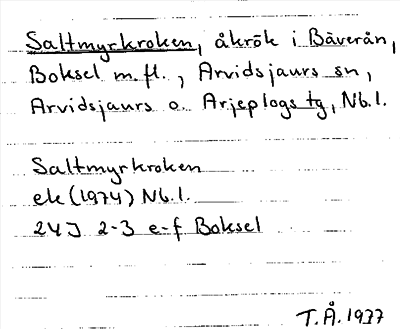 Saltmyrkroken, åkrök i Båverån,
Boksel m.fl., Arvidsjaurs sn,
Arvidsjaurs o. Arjeplogs tg, Nb.l.
Saltmyrkroken
ek (1974) Nb.l.
24J 2-3 e-f Boksel
T.Å.1977